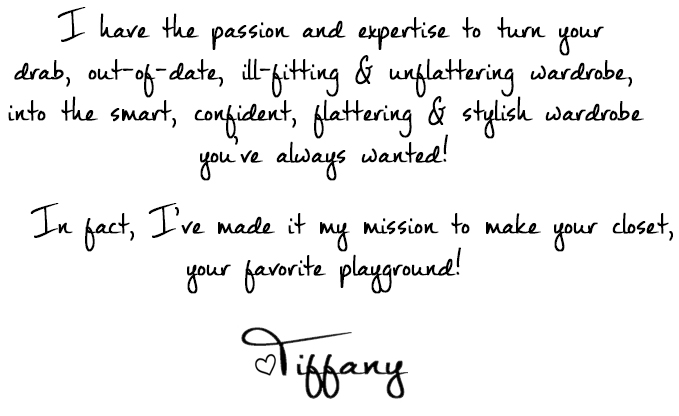 I have the passion and expertise to turn your
drab, out-of-date, ill-fitting & unflattering wardrobe,
into the smart, confident, flattering & stylish wardrobe
you've always wanted!
In fact, I've made it my mission to make your closet,
your favorite playground!
♡Tiffany